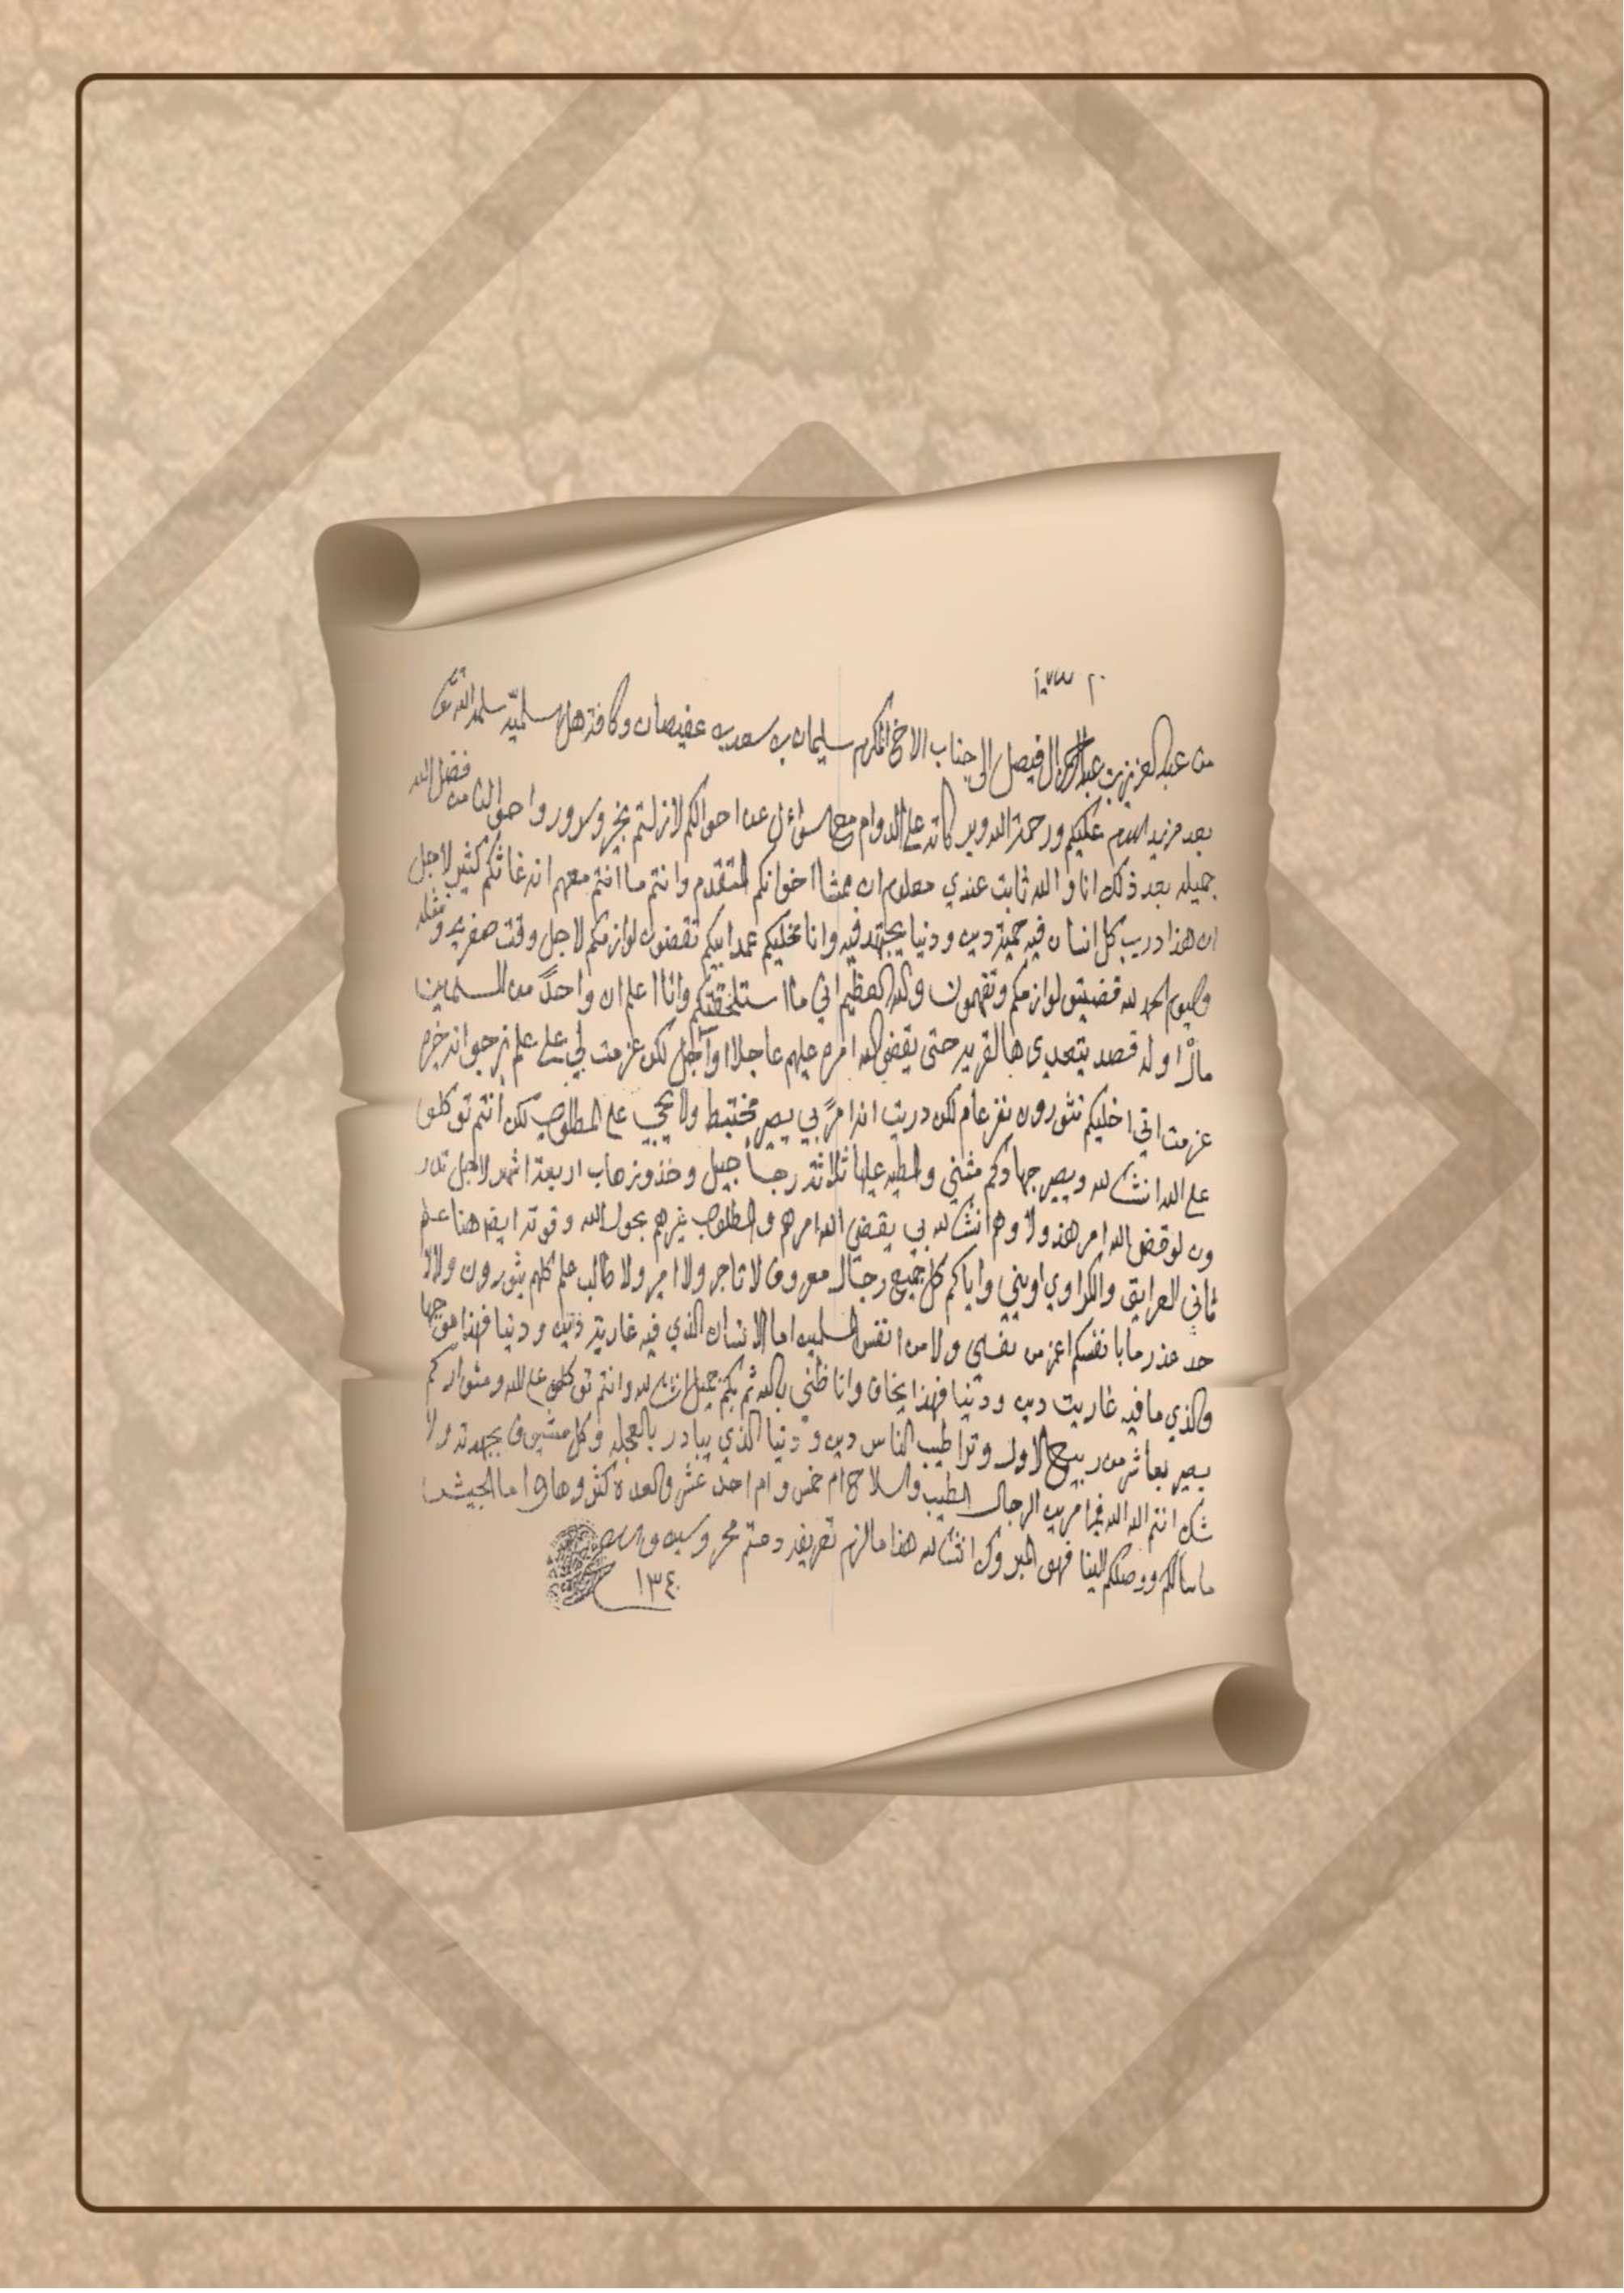 من عبد العزيز بن عبد الرحمن ال فيصل الى جناب الاخ المكرم سليمان بن سعد بن عفيصان وكافة هل سلميه سلمهم الله تعالى
بعد مزيد السلام عليكم ورحمة الله وبركاته على الدوام مع السؤال عن احوالكم لازلتم بخير وسرور واحوالنا من فضل الله
جميله بعد ذلك انا والله ثابت عندي معلوم ان ممشا اخوانكم المتقدم وانتم ما انتم معهم انه غاثكم كثير لاجل
ان هذا درب كل انسان فيه حمية دين ودنيا يجتهد فيه وانا مخليكم عمدا بيكم تقضون لوازمكم لاجل وقت صفريه ومثله
واليوم الحمد لله قضيتو لوازمكم وتفهمون والله العظيم اني ما استلحقتكم وانا اعلم ان واحد من المسلمين
ماله اوله قصد يتعدى هالقريه حتى يقضي الله امره عليهم عاجلا او آجل لكن عزمت لي على علم نرجو انه خيره
عزمت اني اخليكم تثورون نفر عام لكن دريت انه امر بي يصير مختبط ولا يجي على المطلوب لكن انتم توكلو
على الله انشالله ويصير جهادكم مثني والمطيه عليها ثلاثة رجاجيل وخذو زهاب اربعة اشهر لاجل
ون لو قضى الله امر هذولا وهم انشالله بي يقضي الله امرهم والمطلوب غيرهم بحول الله وقوته ايضا هنا علم
ثاني العرايق والكراوي اويني واياكم كل جميع رجال معروف لا تاجر ولا امير ولا طالب علم كلهم يثورون ولا لا
حد عذر مابا نفسكم اعز من نفسي ولا من انفس المسلمين اما الانسان الذي فيه غارية دين ودنيا فهذا موجها
والذي ما فيه غارية دين ودنيا فهذا يخاف وانا ظني بالله ثم بكم جميل انشالله وانتم توكلو على الله ومثواركم
يصير بعاشر من ربيع الاول وترا طيب الناس دين ودنيا الذي يبادر بالعجله وكل مشيوف بجهدته ولا
شك انتم الله الله فيما من الرجال الطيب والسلاح ام خمس وام احد عشر والعده كثروها واما الجيش
ما سالكم ووصلكم الينا فهو المبروك انشالله هذا مالزم تعريفه ودمتم محروسين والسلام
١٣٤٠